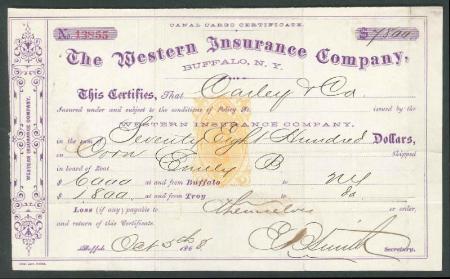 CANAL CARGO CERTIFICATE.
No. 13855 $7800
The Western Insurance Company,
BUFFALO, N. Y.
This Certifies, That Oailey & Co.
Insured under and subject to the conditions of Policy No. issued by the
WESTERN INSURANCE COMPANY,
in the sum Seventy Eight Hundred Dollars,
on Corn Shipped
on board of Boat Emily B
$ 6000 at and from Buffalo to NY
$ 1800 at and from Troy to do
Loss (if any) payable to themselves or order,
and return of this Certificate.
Buffalo, Oct 5th 1868 Smith Secretary.
WESTERN INSURANCE COMPANY.